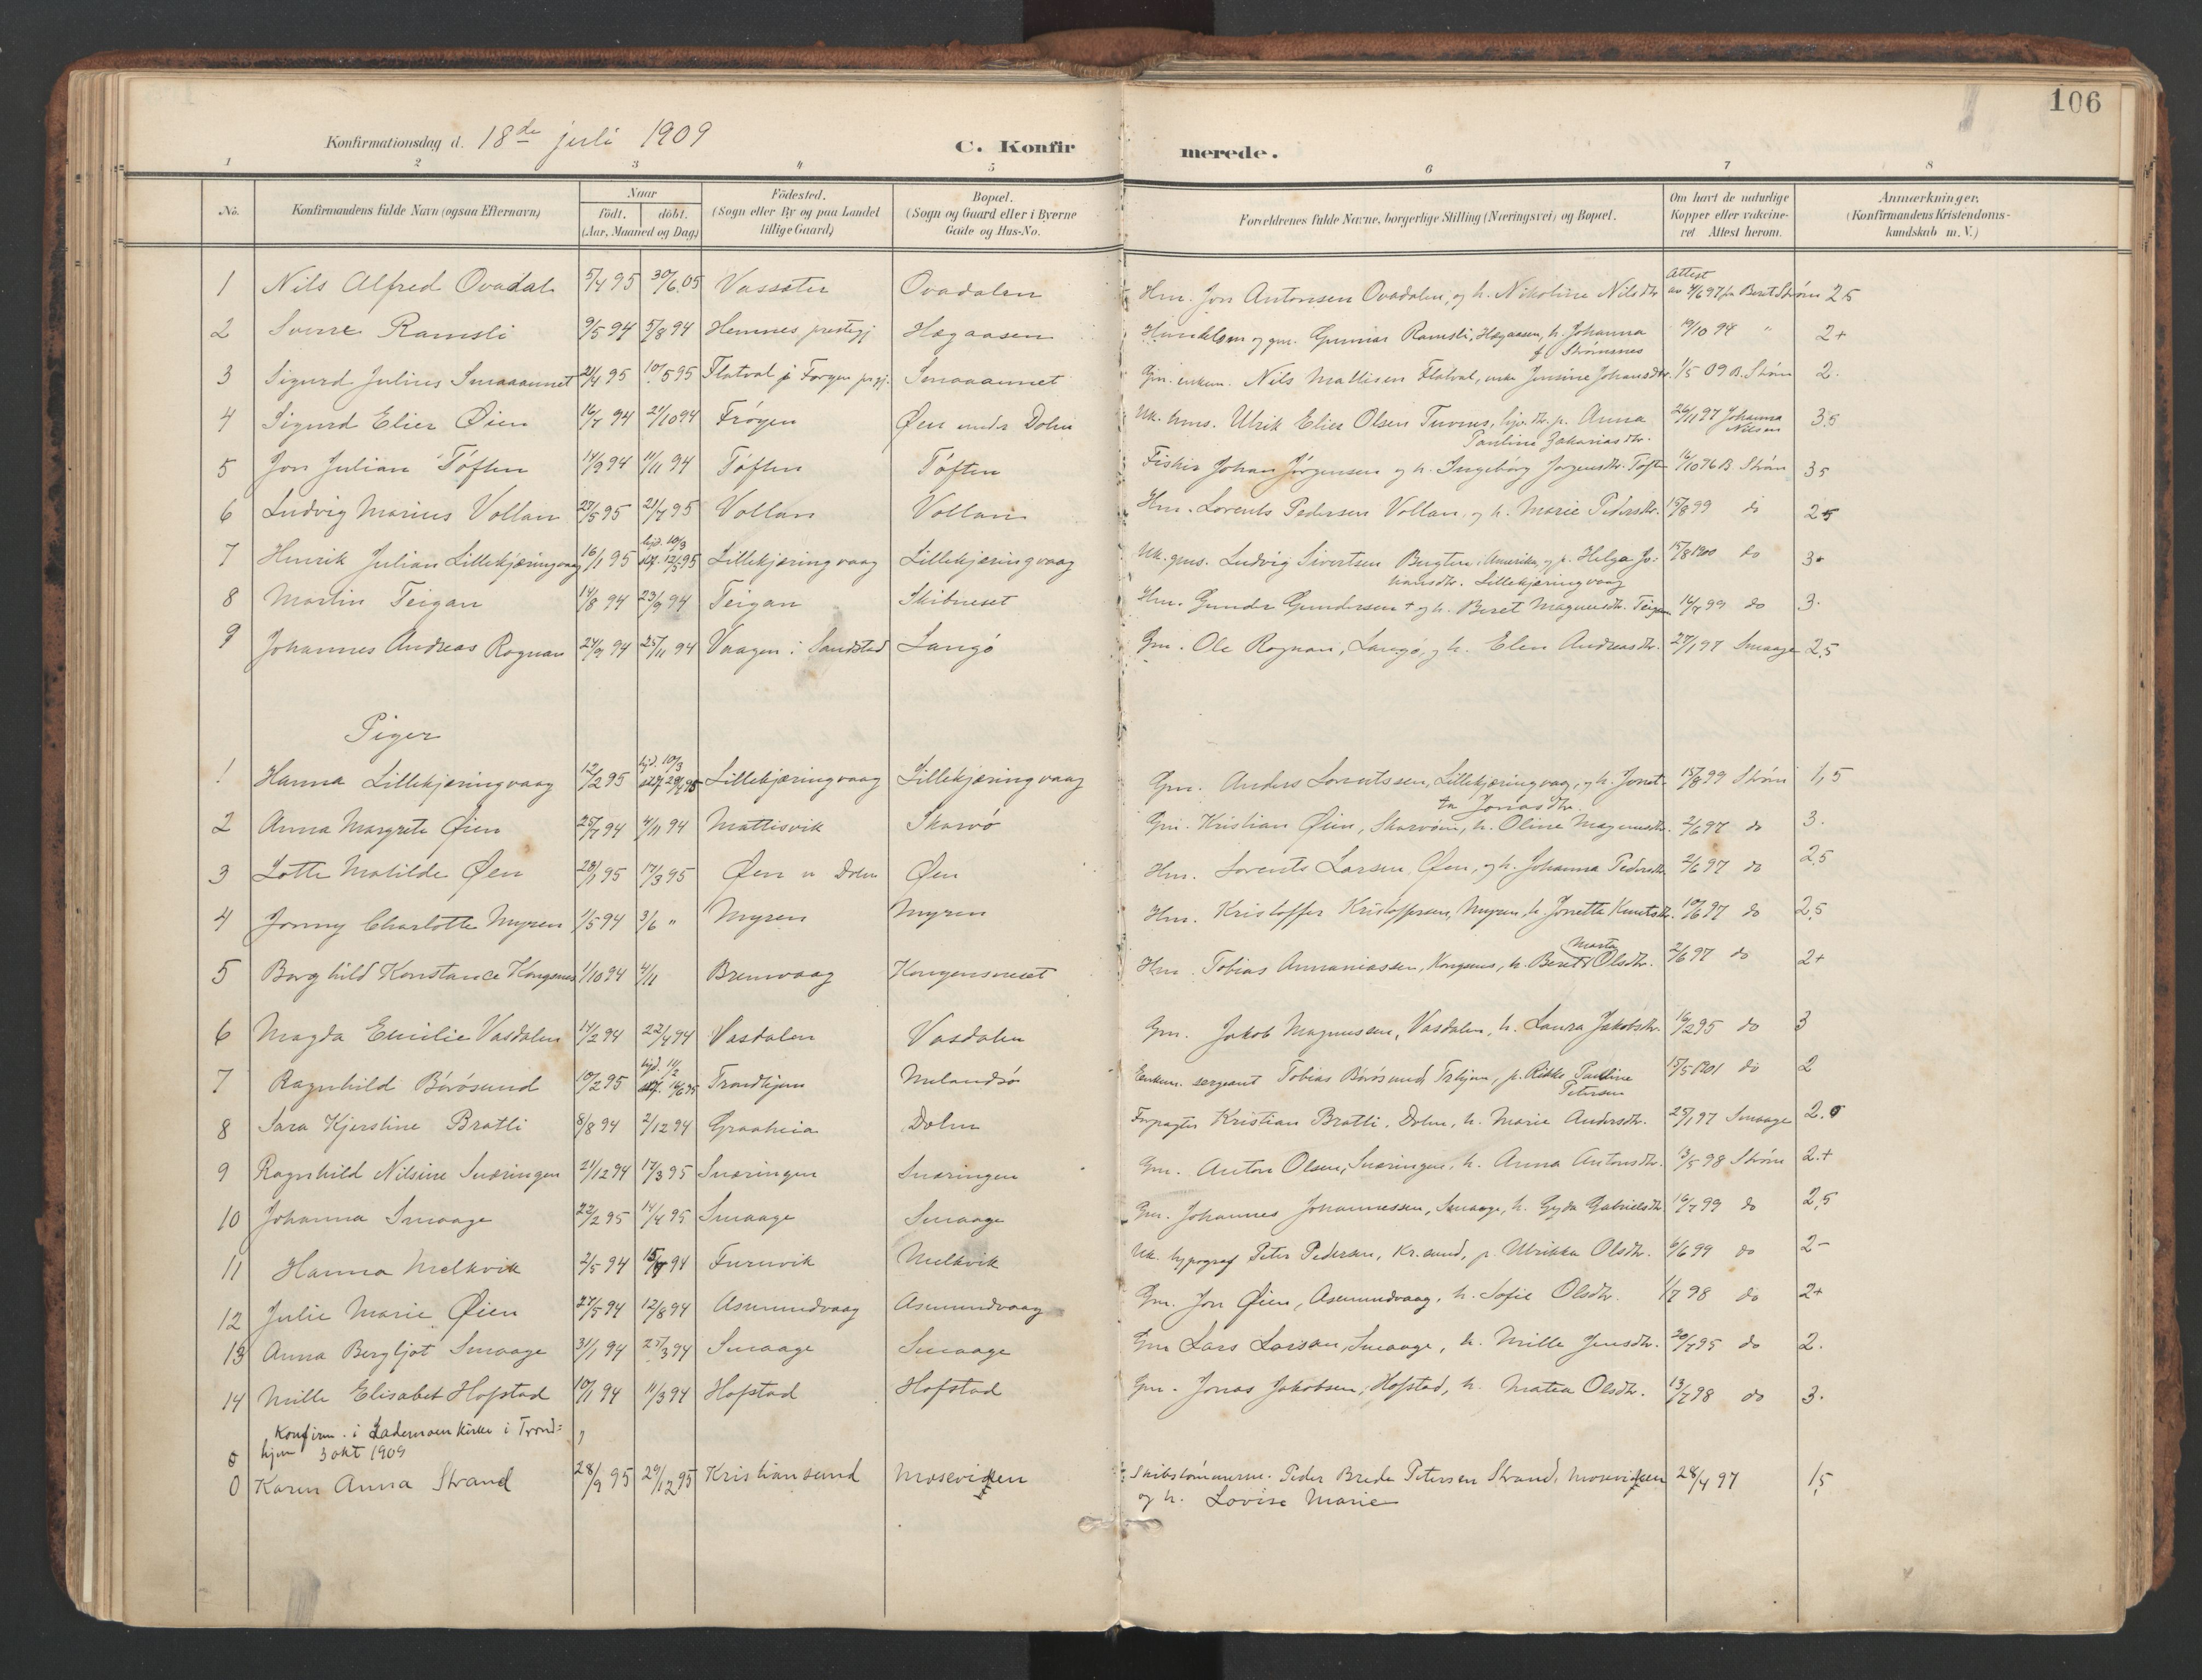 106
Konfirmationsdag d. 18de juli 1909
C. Konfirmerede.
1 2 3 4 5 6 7 8
No. Konfirmandens fulde Navn (ogsaa Efternavn) Naar födt. döbt. (Aar, Maaned og Dag) Födested. (Sogn eller By og paa Landet tillige Gaard) Bopæl. (Sogn og Gaard eller i Byerne Gade og Hus-No. Forældrenes fulde Navne, borgerlige Stilling (Næringsvei) og Bopæl. Om havt de naturlige Kopper eller vakcineret Attest herom. Anmærkninger. (Konfirmandens Kristendomskundskab m. V.)
1 Nils Alfred Ovadal 5/4 95 30/6.05 Vassæter Ovadalen Hm. Jon Antonsen Ovadalen, og h. Nikoline Nilsdtr. Attest av 4/6 97 fra Beret Strøm 2.5
2 Sverre Ramsli 9/5 94 5/8 94 Hemnes prestegj Hægaasen Handelsm og gm. Gunnar Ramsli, Hægaasen, h. Johanna f. Strømsnes 19/10 94 " 2+
3 Sigurd Julius Smaaaunet 21/4 95 10/5 95 Flatval i Frøyen pr.gj. Smaaaunet Gm. enkem. Nils Mathisen Flatval, Jensine Johansdtr. 1/5 09 B. Strøm 2.
4 Sigurd Elier Øien 16/7 94 21/10 94 Frøyen Øen under Dolm Uk. Ulrik Elier Olsen p. Anna Pauline Zakariasdtr. 26/11 97 Johanna Nilsen 3.5
5 Jon Julian Tøften 14/9 94 11/11 94 Tøften Tøften Fisker Johan Jørgensen og h. Ingeborg Jørgensdtr. Tøften 16/10 96 B. Strøm 35
6 Ludvig Marius Vollan 23/5 95 21/7 95 Vollan Vollan Hm. Lorents Pedersen Vollan, og h. Marie Pedersdtr. 15/8 99 do 25
7 Henrik Julian Lillekjæringvaag 16/1 95 hjd. 10/3 stf. 12/5 95 Lillekjæringvaag Lillekjæringvaag Uk. gms. Ludvig Sivertsen Bugten, Amerika, og p. Helga Johansdtr. Lillekjæringvaag 15/8 1900 do 3+
8 Martin Teigan 14/8 94 23/9 94 Teigan Skibneset Hm. Gunder Gundersen † og h. Beret Magnusdtr. Teigan 16/7 99 do 3.
9 Johannes Andreas Rognan 24/9 94 25/11 94 Vaagen i Sandstad Langø Gm. Ole Rognan, Langø, og h. Elen Andreasdtr. 27/1 97 Smaage 2.5
Piger
1 Hanna Lillekjæringvaag 12/2 95 hjd. 10/3 stf. 29/4 95 Lillekjæringvaag Lillekjæringvaag Gm. Anders Lorentssen, Lillekjæringvaag, og h. Jonetta Jonasdtr. 15/8 99 Strøm 1,5
2 Anna Margrete Øien 25/7 94 4/11 94 Mattisvik Skarvø Gm. Kristian Øien, Skarvøen, h. Oline Magnusdtr. 2/6 97 do 3.
3 Lotte Matilde Øen 28/1 95 17/3 95 Øen u Dolm Øen Hm. Lorents Larsen Øen, og h. Johanna Pedersdtr. 2/6 97 do 2.5
4 Jonny Charlotte Myren 1/5 94 3/6 " Myren Myren Hm. Kristoffer Kristoffersen, Myren, h. Jonetta Knutsdtr. 10/6 97 do 2,5
5 Borghild Konstance Kongenes 1/10 94 4/11 Bremvaag Kongensneset Hm. Tobias Annaniassen, Kongsnes, h. Beret Marta Olsdtr. 2/6 97 do 2+
6 Magda Emilie Vasdalen 14/2 94 22/4 94 Vasdalen Vasdalen Gm. Jakob Magnussen, Vasdalen, h. Laura Jakobsdtr. 16/2 95 do 3
7 Ragnhild Børøsund 10/2 95 hjd. 11/2 stf. 16/6 95 Trondhjem Melandsø Enkem. sergeant Tobias Børøsund, Trhjem, p. Rikke Pauline Petersen 15/5 1901 do 2
8 Sara Kjerstine Bratli 8/8 94 2/12 94 Graaheia Dolm Kristian Bratli, Dolm, h. Marie Andersdtr. 25/1 97 Smaage 2.
9 Ragnhild Nilsine Snæringen 21/12 94 17/3 95 Snæringen Snæringen Gm. Anton Olsen, Snæringen, h. Anna Antonsdtr. 13/5 98 Strøm 2.+
10 Johanna Smaage 22/2 95 14/4 95 Smaage Smaage Gm. Johannes Johannessen, Smaage, h. Gyda Gabrielsdtr 16/7 99 do 2,5
11 Hanna Melkvik 2/5 94 15/7 94 Furuvik Melkvik Uk. typograf Peter Pedersen, Kr.sund, p. Ulrikka Olsdtr. 6/6 99 do 2-
12 Julie Marie Øien 27/5 94 12/8 94 Asmundvaag Asmundvaag Gm. Jon Øien, Asmundvaag, h. Sofie Olsdtr. 1/7 98 do 2+
13 Anna Bergljot Smaage 31/1 94 25/3 94 Smaage Smaage Gm Lars Larsen, Smaage, h. Mille Jensdtr. 20/7 95 do 2.
14 Mille Elisabet Hofstad 10/1 94 11/3 94 Hofstad Hofstad Gm. Jonas Jakobsen, Hofstad, h. Matea Olsdtr. 13/7 98 do 3.
Konfirm. i Lademoen kirke i Trond=
hjem 3 okt 1909
0 Karen Anna Strand 28/9 95 29/12 95 Kristiansund Moseviken Skibstømmerm. Peder Brede Petersen Strand, Moseviken 28/4 97 1,5
og h. Lovise Marie